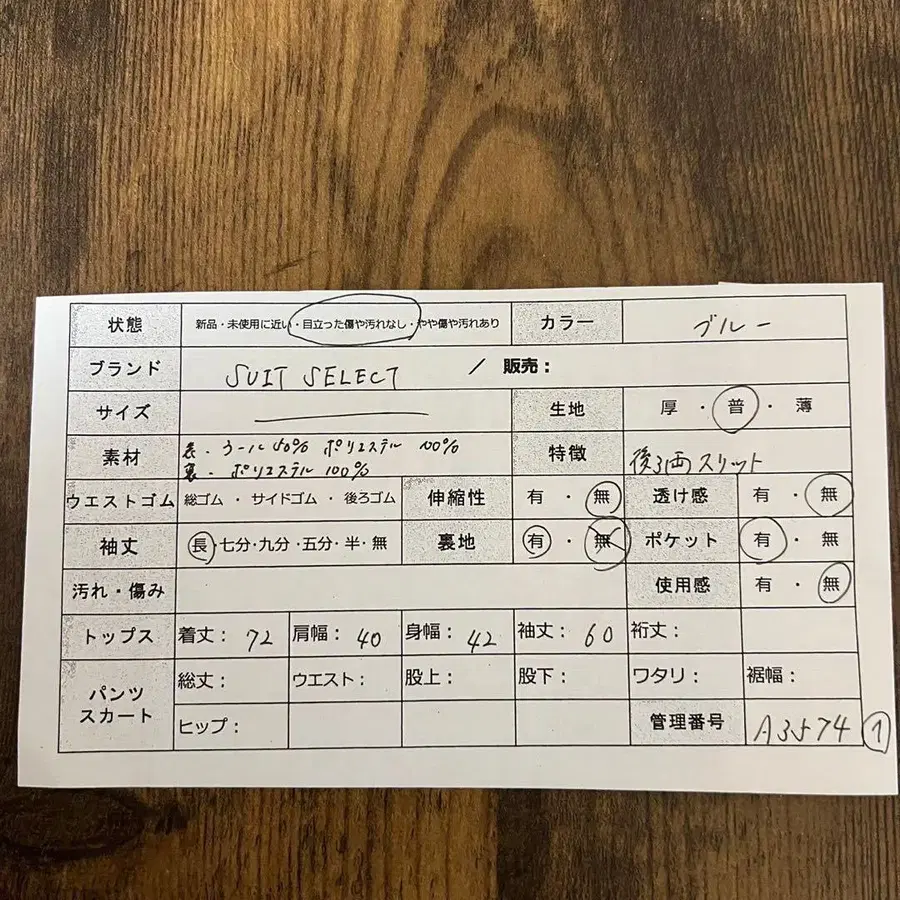 状態 新品・未使用に近い・目立った傷や汚れなし・やや傷や汚れあり カラー ブルー
ブランド SUIT SELECT / 販売：
サイズ 生地 厚・普・薄
素材 表. ウール 50% ポリエステル
裏. ポリエステル 100%
特徴 後ろ両スリット
ウエストゴム 総ゴム・サイドゴム・後ろゴム 伸縮性 有・無 透け感 有・無
袖丈 長・七分・九分・五分・半・無 裏地 有・無 ポケット 有・無
汚れ・傷み 使用感 有・無
トップス 着丈： 72 肩幅： 40 身幅： 42 袖丈： 60 裄丈：
パンツ スカート 総丈： ウエスト： 股上： 股下： ワタリ： 裾幅：
ヒップ： 管理番号 A3574 ①